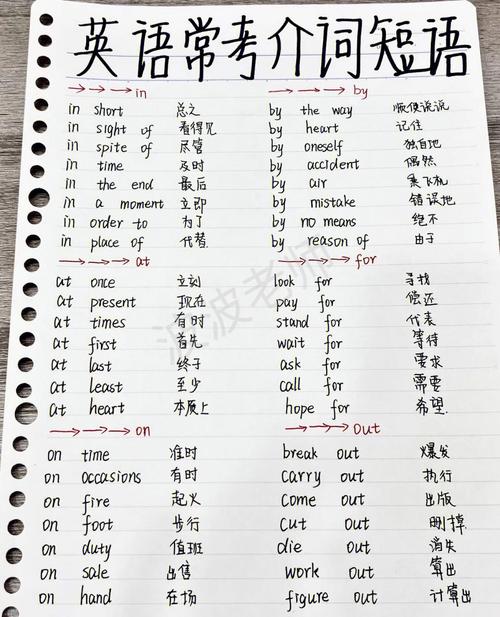 英语常考介词短语
→→→in
in short 总之
in sight of 看得见
in spite of 尽管
in time 及时
in the end 最后
in a moment 立即
in order to 为了
in place of 代替
→→→by
by the way 顺便说说
by heart 记住
by oneself 独自地
by accident 偶然
by air 乘飞机
by mistake 错误地
by no means 绝不
by reason of 由于
→→→at
at once 立刻
at present 现在
at times 有时
at first 首先
at last 终于
at least 至少
at heart 本质上
→→→for
look for 寻找
pay for 偿还
stand for 代表
wait for 等待
ask for 要求
call for 需要
hope for 希望
→→→on
on time 准时
on occasions 有时
on fire 起火
on foot 步行
on duty 值班
on sale 出售
on hand 在场
→→→out
break out 爆发
carry out 执行
come out 出版
cut out 删掉
die out 消失
work out 算出
figure out 计算出
波波老师